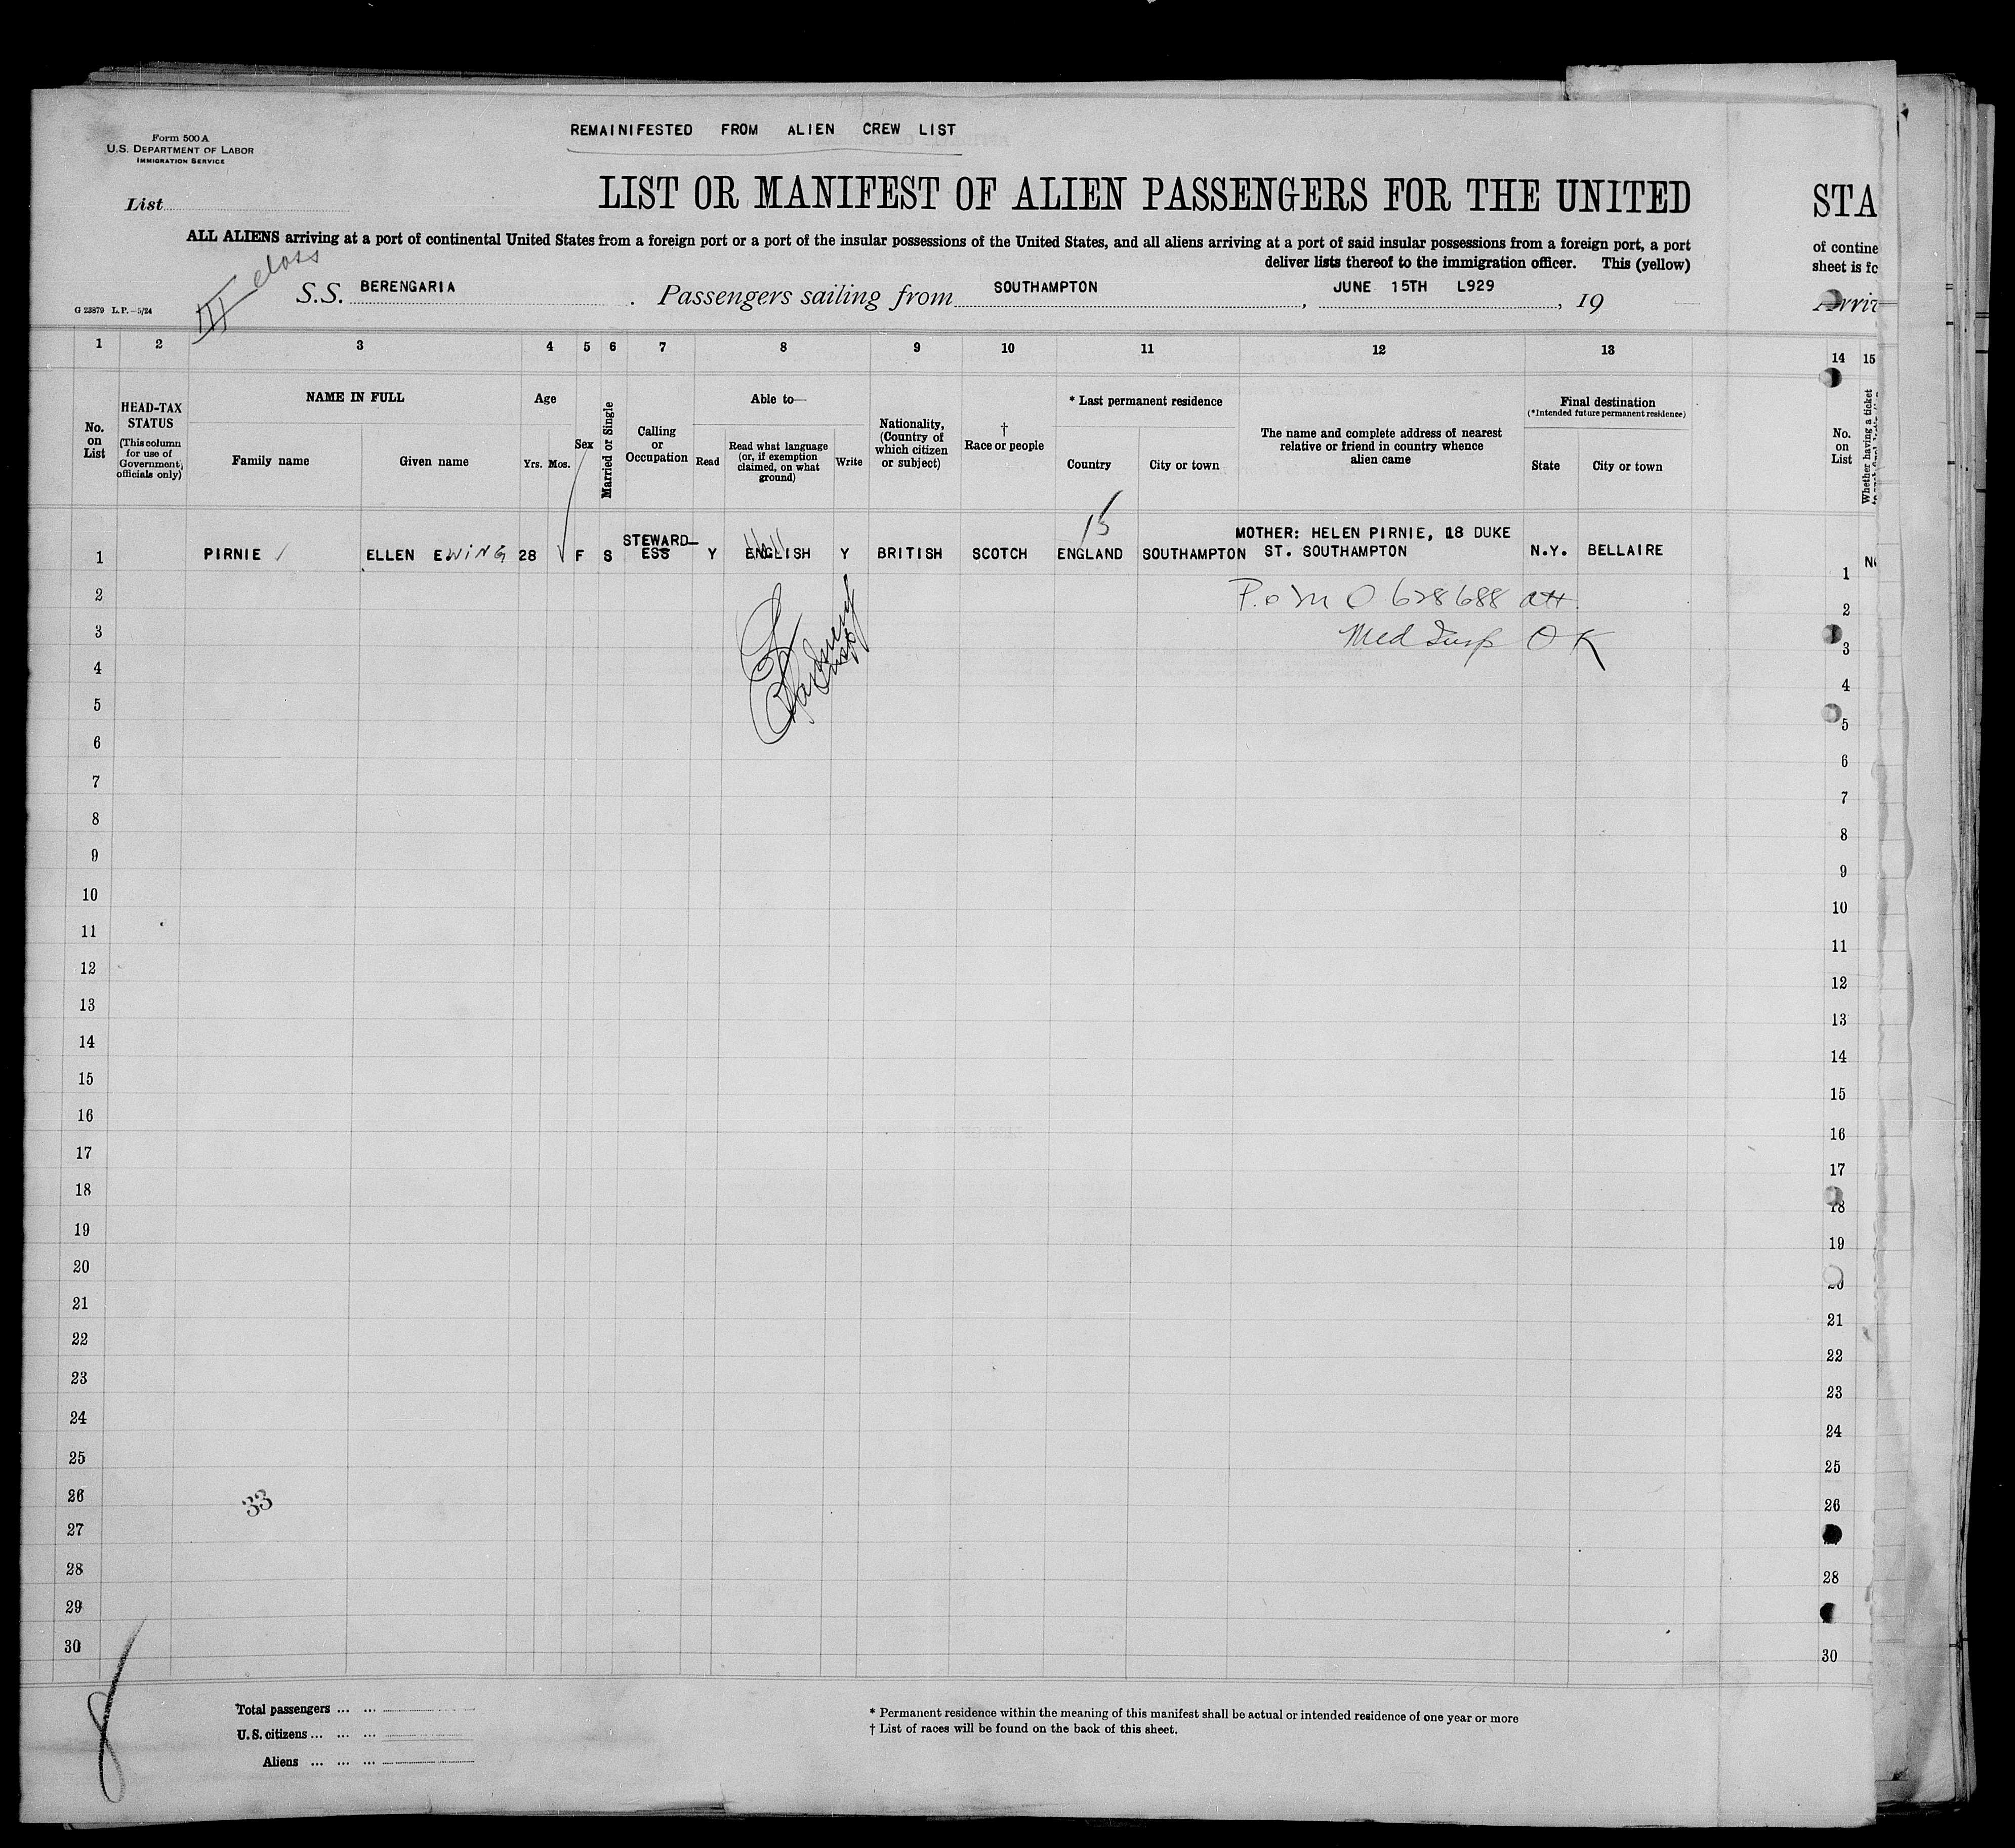 REMAINIFESTED FROM ALIEN CREW LIST
Form 500 A
U.S. DEPARTMENT OF LABOR
IMMIGRATION SERVICE
List
LIST OR MANIFEST OF ALIEN PASSENGERS FOR THE UNITED STA
ALL ALIENS arriving at a port of continental United States from a foreign port or a port of the insular possessions of the United States, and all aliens arriving at a port of said insular possessions from a foreign port, a port of contine
deliver lists thereof to the immigration officer. This (yellow) sheet is fo
III class
S.S. BERENGARIA . Passengers sailing from SOUTHAMPTON , JUNE 15TH L929 , 19 Arriv
G 23879 L.P.—5/24
1 2 3 4 5 6 7 8 9 10 11 12 13 14 15
No. on List
HEAD-TAX STATUS
(This column for use of Government officials only)
NAME IN FULL
Family name
Given name
Age
Yrs. Mos.
Sex
Married or Single
Calling or Occupation
Able to—
Read
Read what language (or, if exemption claimed, on what ground)
Write
Nationality, (Country of which citizen or subject)
† Race or people
* Last permanent residence
Country
City or town
The name and complete address of nearest relative or friend in country whence alien came
Final destination
(*Intended future permanent residence)
State
City or town
No. on List
Whether having a ticket
15
1 PIRNIE ELLEN EWING 28 F S STEWARD-ESS Y ENGLISH Y BRITISH SCOTCH ENGLAND SOUTHAMPTON MOTHER: HELEN PIRNIE, 18 DUKE ST. SOUTHAMPTON N.Y. BELLAIRE 1
2 P.o M O 628688 att. 2
3 Med Insp OK 3
4 4
5 5
6 6
7 7
8 8
9 9
10 10
11 11
12 12
13 13
14 14
15 15
16 16
17 17
18 18
19 19
20 20
21 21
22 22
23 23
24 24
25 25
26 33 26
27
28 28
29
30 30
8
Total passengers ... ...
U.S. citizens ... ... ...
Aliens ... ... ...
* Permanent residence within the meaning of this manifest shall be actual or intended residence of one year or more
† List of races will be found on the back of this sheet.